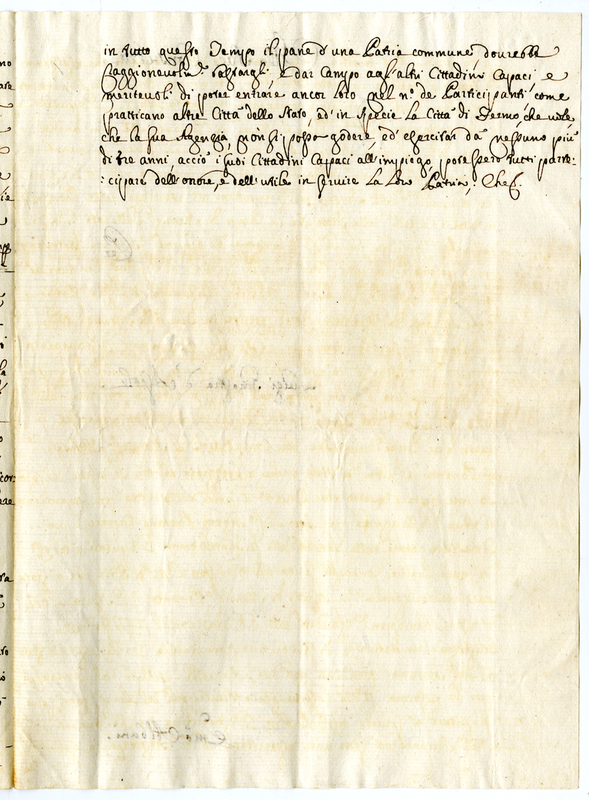 in tutto questo Tempo il pane d'una Patria commune dovrebbe
Raggionevolm.te e dar Campo agl'altri Cittadini Capaci e
meritevoli di poter entrare ancor loro nel n.o de Participanti come
pratticano altre Città dello Stato, ed in specie La Città di Fermo, che vole
che la sua Agenzia, non si possa godere, ed esercitar da nessuno più
di tre anni, acciò i suoi Cittadini Capaci all'impiego, potessero tutti parte=
:cipare dell'onore, e dell'utile in servire La loro Patria; Che